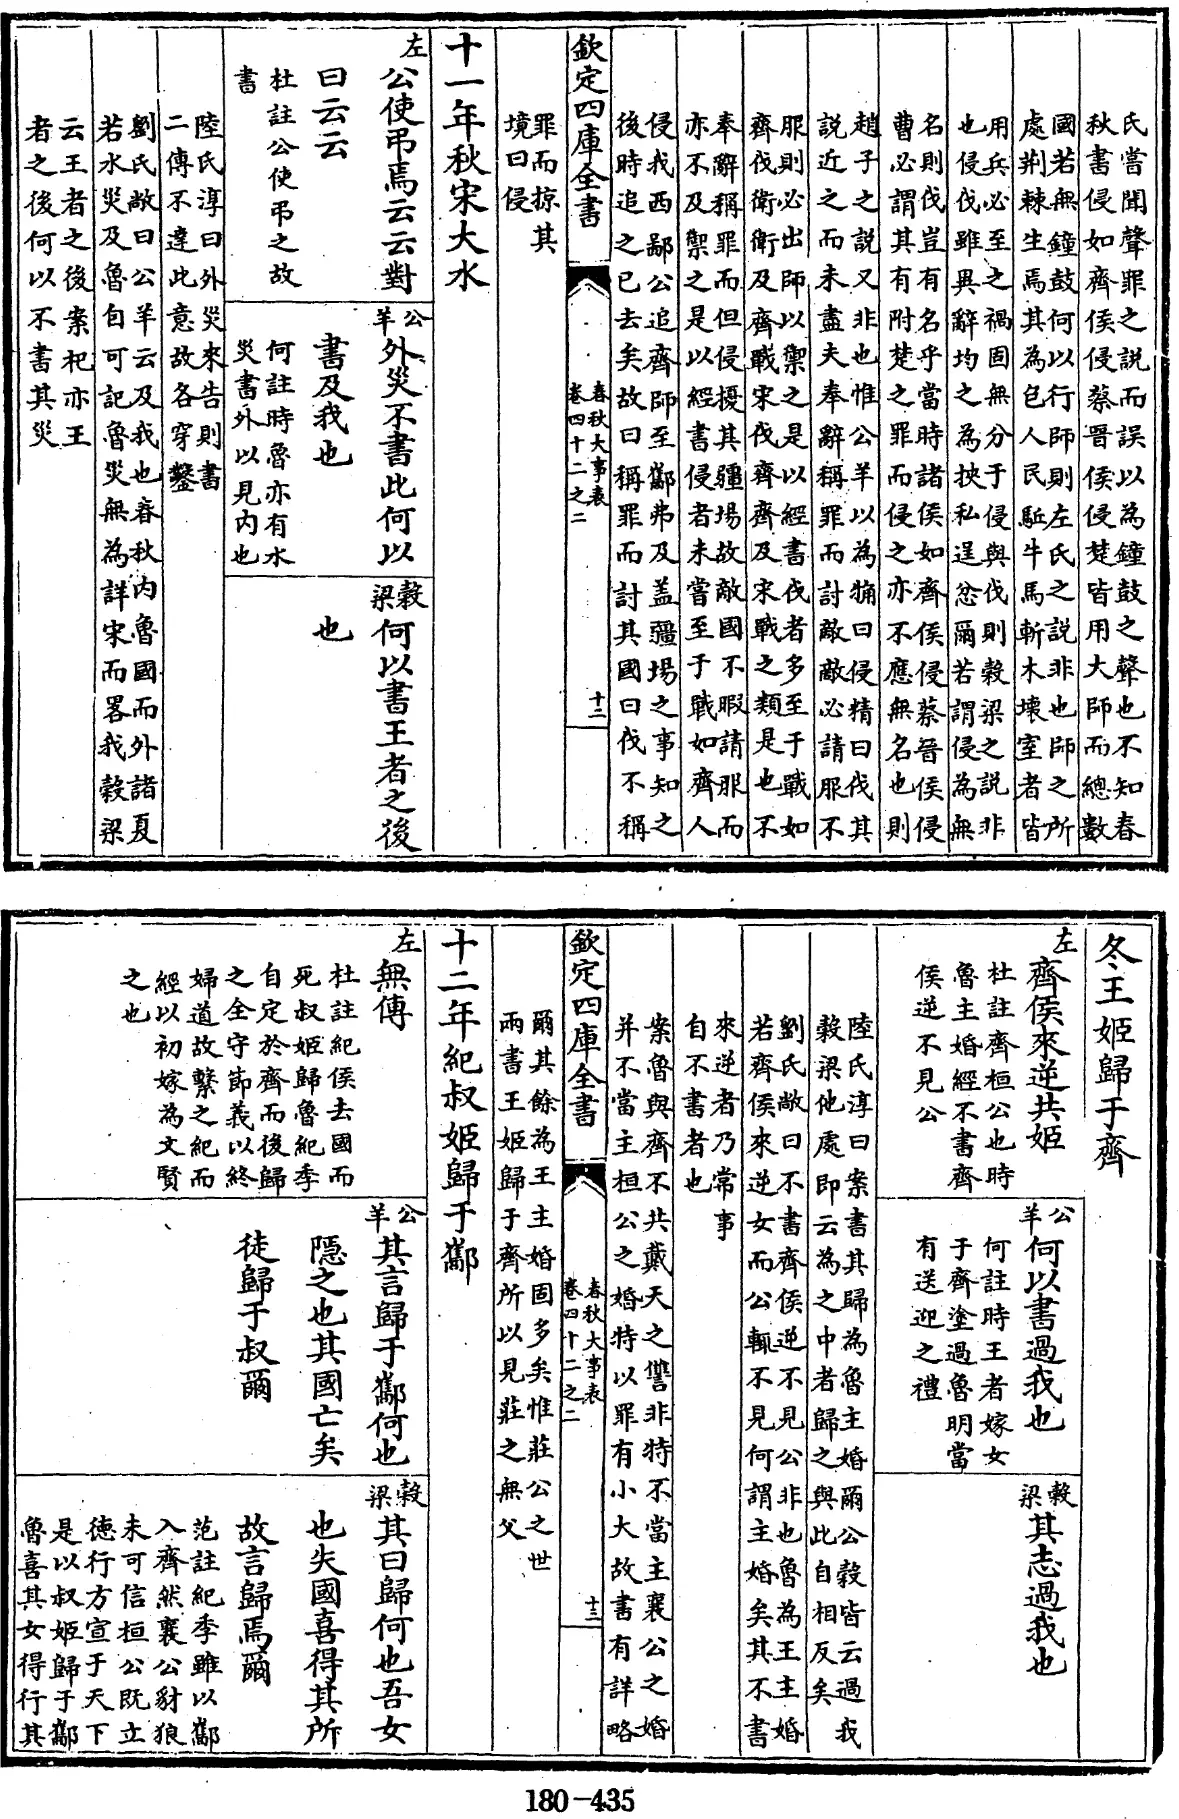 氏當聞聲罪之說而誤以為鐘鼓之聲也不知春
秋書侵如齊侯侵蔡晉侯侵楚皆用大師而總數
國若無鐘鼓何以行師則左氏之說非也師之所
處荆棘生焉其為包人民敺牛馬斬木壞室者皆
用兵必至之禍固無分于侵與伐則穀梁之說非
也侵伐雖異辭均之為挾私逞忿爾若謂侵為無
名則伐豈有名乎當時諸侯如齊侯侵蔡晉侯侵
曹必謂其有附楚之罪而侵之亦不應無名也則
趙子之說又非也惟公羊以為觕曰侵精曰伐其
說近之而未盡夫奉辭稱罪而討敵敵必請服不
服則必出師以禦之是以經書伐者多至于戰如
齊伐衛衛及齊戰宋伐齊齊及宋戰之類是也不
奉辭稱罪而但侵擾其疆場故敵國不暇請服而
亦不及禦之是以經書侵者未嘗至于戰如齊人
侵我西鄙公追齊師至酅弗及蓋疆場之事知之
後時追之已去矣故曰稱罪而討其國曰伐不稱
欽定四庫全書
春秋大事表
卷四十二之二
十二
罪而掠其
境曰侵
十一年秋宋大水
左
公使弔焉云云對
曰云云
杜註公使弔之故
書
公羊
外災不書此何以
書及我也
何註時魯亦有水
災書外以見內也
穀梁
何以書王者之後
也
陸氏淳曰外災來告則書
二傳不達此意故各穿鑿
劉氏敞曰公羊云及我也春秋內魯國而外諸夏
若水災及魯自可記魯災無為詳宋而畧我穀梁
云王者之後案杞亦王
者之後何以不書其災
冬王姬歸于齊
左
齊侯來逆共姬
杜註齊桓公也時
魯主婚經不書齊
侯逆不見公
公羊
何以書過我也
何註時王者嫁女
于齊塗過魯明當
有送迎之禮
穀梁
其志過我也
陸氏淳曰案書其歸為魯主婚爾公穀皆云過我
穀梁他處即云為之中者歸之與此自相反矣
劉氏敞曰不書齊侯逆不見公非也魯為王主婚
若齊侯來逆女而公輒不見何謂主婚矣其不書
來逆者乃常事
自不書者也
案魯與齊不共戴天之讐非特不當主襄公之婚
并不當主桓公之婚特以罪有小大故書有詳略
欽定四庫全書
春秋大事表
卷四十二之二
十三
爾其餘為王主婚固多矣惟莊公之世
兩書王姬歸于齊所以見莊之無父
十二年紀叔姬歸于酅
左
無傳
杜註紀侯去國而
死叔姬歸魯紀季
自定於齊而後歸
之全守節義以終
婦道故繫之紀而
經以初嫁為文賢
之也
公羊
其言歸于酅何也
隱之也其國亡矣
徒歸于叔爾
穀梁
其曰歸何也吾女
也失國喜得其所
故言歸焉爾
范註紀季雖以酅
入齊然襄公豺狼
未可信桓公既立
德行方宣于天下
是以叔姬歸于酅
魯喜其女得行其
180-435